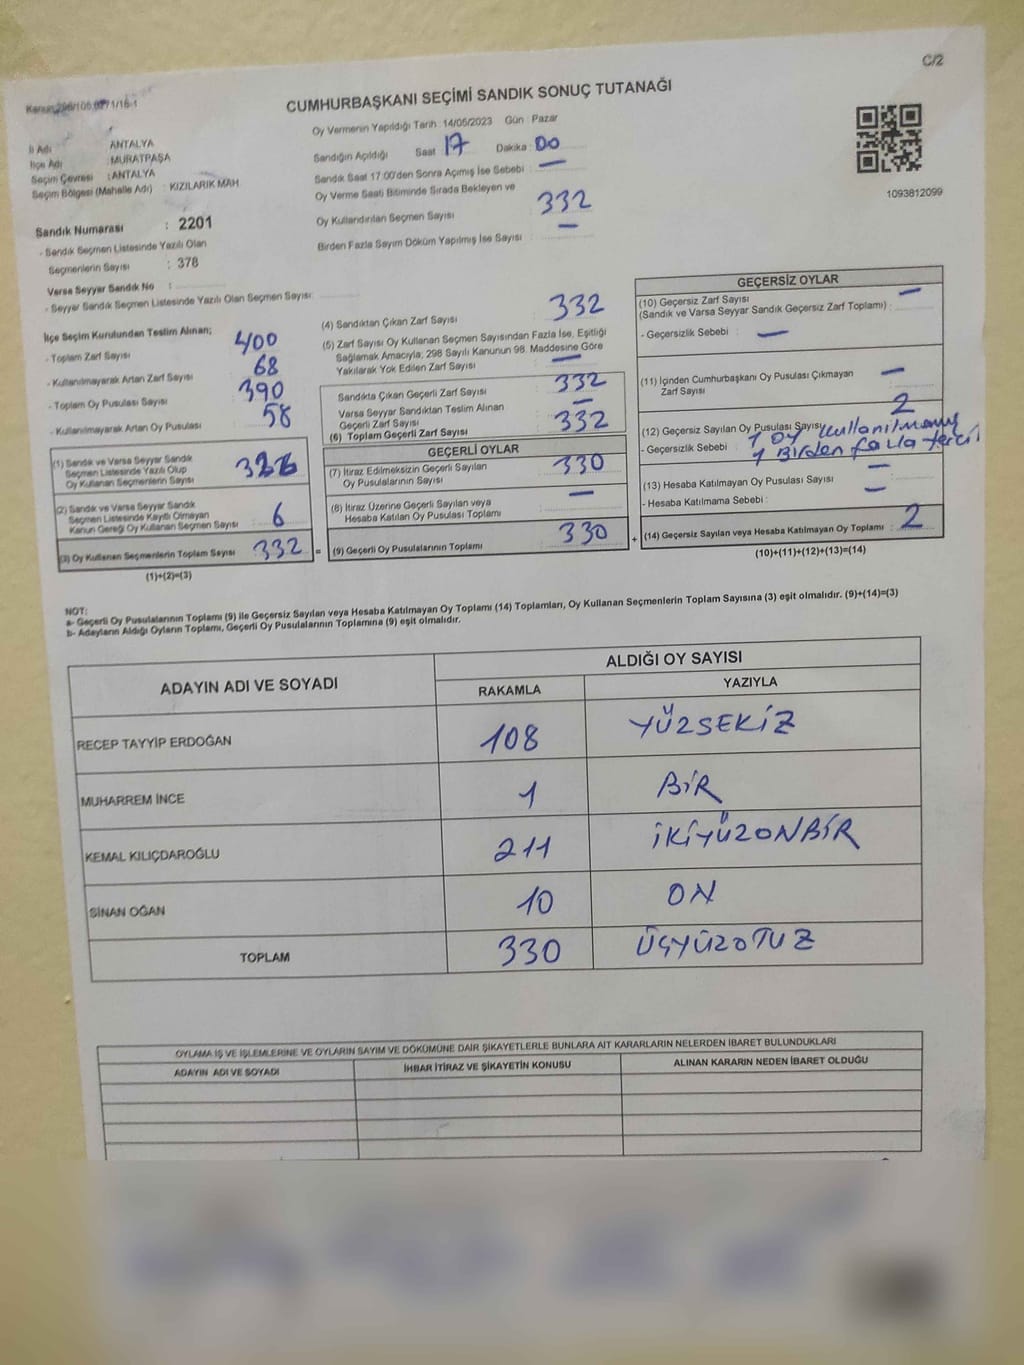 C/2
CUMHURBAŞKANI SEÇİMİ SANDIK SONUÇ TUTANAĞI
Oy Vermenin Yapıldığı Tarih :14/05/2023 Gün : Pazar
İl Adı : ANTALYA
İlçe Adı : MURATPAŞA
Seçim Çevresi : ANTALYA
Seçim Bölgesi (Mahalle Adı) : KIZILARIK MAH.
Sandığın Açıldığı Saat 17 Dakika : 00
Sandık Saat 17:00'den Sonra Açılmış İse Sebebi : —
Oy Verme Saati Bitiminde Sırada Bekleyen ve
Oy Kullandırılan Seçmen Sayısı 332
Birden Fazla Sayım Döküm Yapılmış İse Sayısı : —
1093812099
Sandık Numarası : 2201
- Sandık Seçmen Listesinde Yazılı Olan
Seçmenlerin Sayısı : 378
Varsa Seyyar Sandık No :
- Seyyar Sandık Seçmen Listesinde Yazılı Olan Seçmen Sayısı:
İlçe Seçim Kurulundan Teslim Alınan;
- Toplam Zarf Sayısı : 400
- Kullanılmayarak Artan Zarf Sayısı : 68
- Toplam Oy Pusulası Sayısı : 390
- Kullanılmayarak Artan Oy Pusulası : 58
(1) Sandık ve Varsa Seyyar Sandık
Seçmen Listesinde Yazılı Olup
Oy Kullanan Seçmenlerin Sayısı : 326
(2) Sandık ve Varsa Seyyar Sandık
Seçmen Listesinde Kayıtlı Olmayan
Kanun Gereği Oy Kullanan Seçmen Sayısı : 6
(3) Oy Kullanan Seçmenlerin Toplam Sayısı 332 =
(1)+(2)=(3)
(4) Sandıktan Çıkan Zarf Sayısı : 332
(5) Zarf Sayısı Oy Kullanan Seçmen Sayısından Fazla İse, Eşitliği
Sağlamak Amacıyla; 298 Sayılı Kanunun 98. Maddesine Göre
Yakılarak Yok Edilen Zarf Sayısı : —
Sandıkta Çıkan Geçerli Zarf Sayısı : 332
Varsa Seyyar Sandıktan Teslim Alınan
Geçerli Zarf Sayısı : —
(6) Toplam Geçerli Zarf Sayısı : 332
GEÇERLİ OYLAR
(7) İtiraz Edilmeksizin Geçerli Sayılan
Oy Pusulalarının Sayısı : 330
(8) İtiraz Üzerine Geçerli Sayılan veya
Hesaba Katılan Oy Pusulası Toplamı : —
(9) Geçerli Oy Pusulalarının Toplamı : 330 +
GEÇERSİZ OYLAR
(10) Geçersiz Zarf Sayısı —
(Sandık ve Varsa Seyyar Sandık Geçersiz Zarf Toplamı) :
- Geçersizlik Sebebi : —
(11) İçinden Cumhurbaşkanı Oy Pusulası Çıkmayan
Zarf Sayısı : —
(12) Geçersiz Sayılan Oy Pusulası Sayısı 2
- Geçersizlik Sebebi : 1 oy kullanılmamış
1 Birden fazla tercih
(13) Hesaba Katılmayan Oy Pusulası Sayısı : —
- Hesaba Katılmama Sebebi : —
(14) Geçersiz Sayılan veya Hesaba Katılmayan Oy Toplamı : 2
(10)+(11)+(12)+(13)=(14)
NOT:
a- Geçerli Oy Pusulalarının Toplamı (9) ile Geçersiz Sayılan veya Hesaba Katılmayan Oy Toplamı (14) Toplamları, Oy Kullanan Seçmenlerin Toplam Sayısına (3) eşit olmalıdır. (9)+(14)=(3)
b- Adayların Aldığı Oyların Toplamı, Geçerli Oy Pusulalarının Toplamına (9) eşit olmalıdır.
ADAYIN ADI VE SOYADI ALDIĞI OY SAYISI
RAKAMLA YAZIYLA
RECEP TAYYİP ERDOĞAN 108 YÜZSEKİZ
MUHARREM İNCE 1 BİR
KEMAL KILIÇDAROĞLU 211 İKİYÜZONBİR
SİNAN OĞAN 10 ON
TOPLAM 330 ÜÇYÜZOTUZ
OYLAMA İŞ VE İŞLEMLERİNE VE OYLARIN SAYIM VE DÖKÜMÜNE DAİR ŞİKAYETLERLE BUNLARA AİT KARARLARIN NELERDEN İBARET BULUNDUKLARI
ADAYIN ADI VE SOYADI İHBAR İTİRAZ VE ŞİKAYETİN KONUSU ALINAN KARARIN NEDEN İBARET OLDUĞU